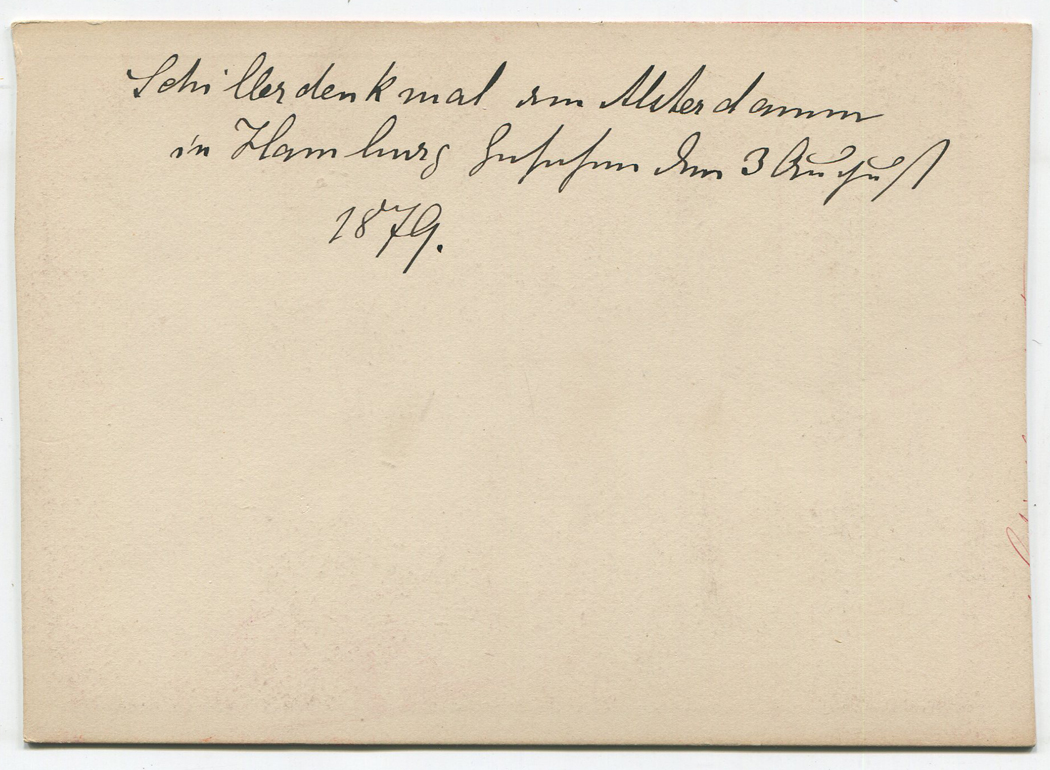 Schillerdenkmal am Alsterdamm
in Hamburg gesehen den 3 August
1879.